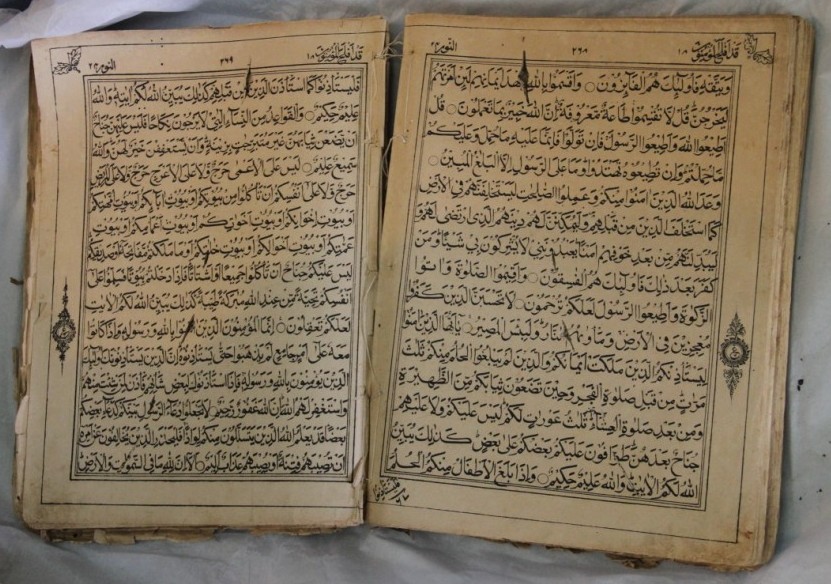 قد افلح المؤمنون ١٨
٢٦٨
النور ٢٤
ويتقه فاولئك هم الفائزون ○ واقسموا بالله جهد ايمانهم لئن امرتهم
ليخرجن قل لا تقسموا طاعة معروفة ان الله خبير بما تعملون ○ قل
اطيعوا الله واطيعوا الرسول فان تولوا فانما عليه ما حمل وعليكم
ما حملتم وان تطيعوه تهتدوا وما على الرسول الا البلغ المبين ○
وعد الله الذين امنوا منكم وعملوا الصلحت ليستخلفنهم في الارض
كما استخلف الذين من قبلهم وليمكنن لهم دينهم الذي ارتضى لهم و
ليبدلنهم من بعد خوفهم امنا يعبدونني لا يشركون بي شيئا ومن
كفر بعد ذلك فاولئك هم الفسقون ○ واقيموا الصلوة واتوا
الزكوة واطيعوا الرسول لعلكم ترحمون ○ لا تحسبن الذين كفروا
معجزين في الارض وماوىهم النار ولبئس المصير ○ يايها الذين امنوا
ليستاذنكم الذين ملكت ايمانكم والذين لم يبلغوا الحلم منكم ثلث
مرت من قبل صلوة الفجر وحين تضعون ثيابكم من الظهيرة
ومن بعد صلوة العشاء ثلث عورت لكم ليس عليكم ولا عليهم
جناح بعدهن طوافون عليكم بعضكم على بعض كذلك يبين
الله لكم الايت والله عليم حكيم ○ واذا بلغ الاطفال منكم الحلم
قد افلح المؤمنون ١٨
٢٦٩
النور ٢٤
فليستاذنوا كما استاذن الذين من قبلهم كذلك يبين الله لكم ايته والله
عليم حكيم ○ والقواعد من النساء التي لا يرجون نكاحا فليس عليهن جناح
ان يضعن ثيابهن غير متبرجت بزينة وان يستعففن خير لهن والله
سميع عليم ○ ليس على الاعمى حرج ولا على الاعرج حرج ولا على المريض
حرج ولا على انفسكم ان تاكلوا من بيوتكم او بيوت ابائكم او بيوت امهتكم
او بيوت اخوانكم او بيوت اخوتكم او بيوت اعمامكم او بيوت
عمتكم او بيوت اخوالكم او بيوت خلتكم او ما ملكتم مفاتحه او صديقكم
ليس عليكم جناح ان تاكلوا جميعا او اشتاتا فاذا دخلتم بيوتا فسلموا على
انفسكم تحية من عند الله مبركة طيبة كذلك يبين الله لكم الايت
لعلكم تعقلون ○ انما المؤمنون الذين امنوا بالله ورسوله واذا كانوا
معه على امر جامع لم يذهبوا حتى يستاذنوه ان الذين يستاذنونك اولئك
الذين يؤمنون بالله ورسوله فاذا استاذنوك لبعض شانهم فاذن لمن شئت منهم
واستغفر لهم الله ان الله غفور رحيم ○ لا تجعلوا دعاء الرسول بينكم كدعاء بعضكم
بعضا قد يعلم الله الذين يتسللون منكم لواذا فليحذر الذين يخالفون عن امره
ان تصيبهم فتنة او يصيبهم عذاب اليم ○ الا ان لله ما في السموت والارض